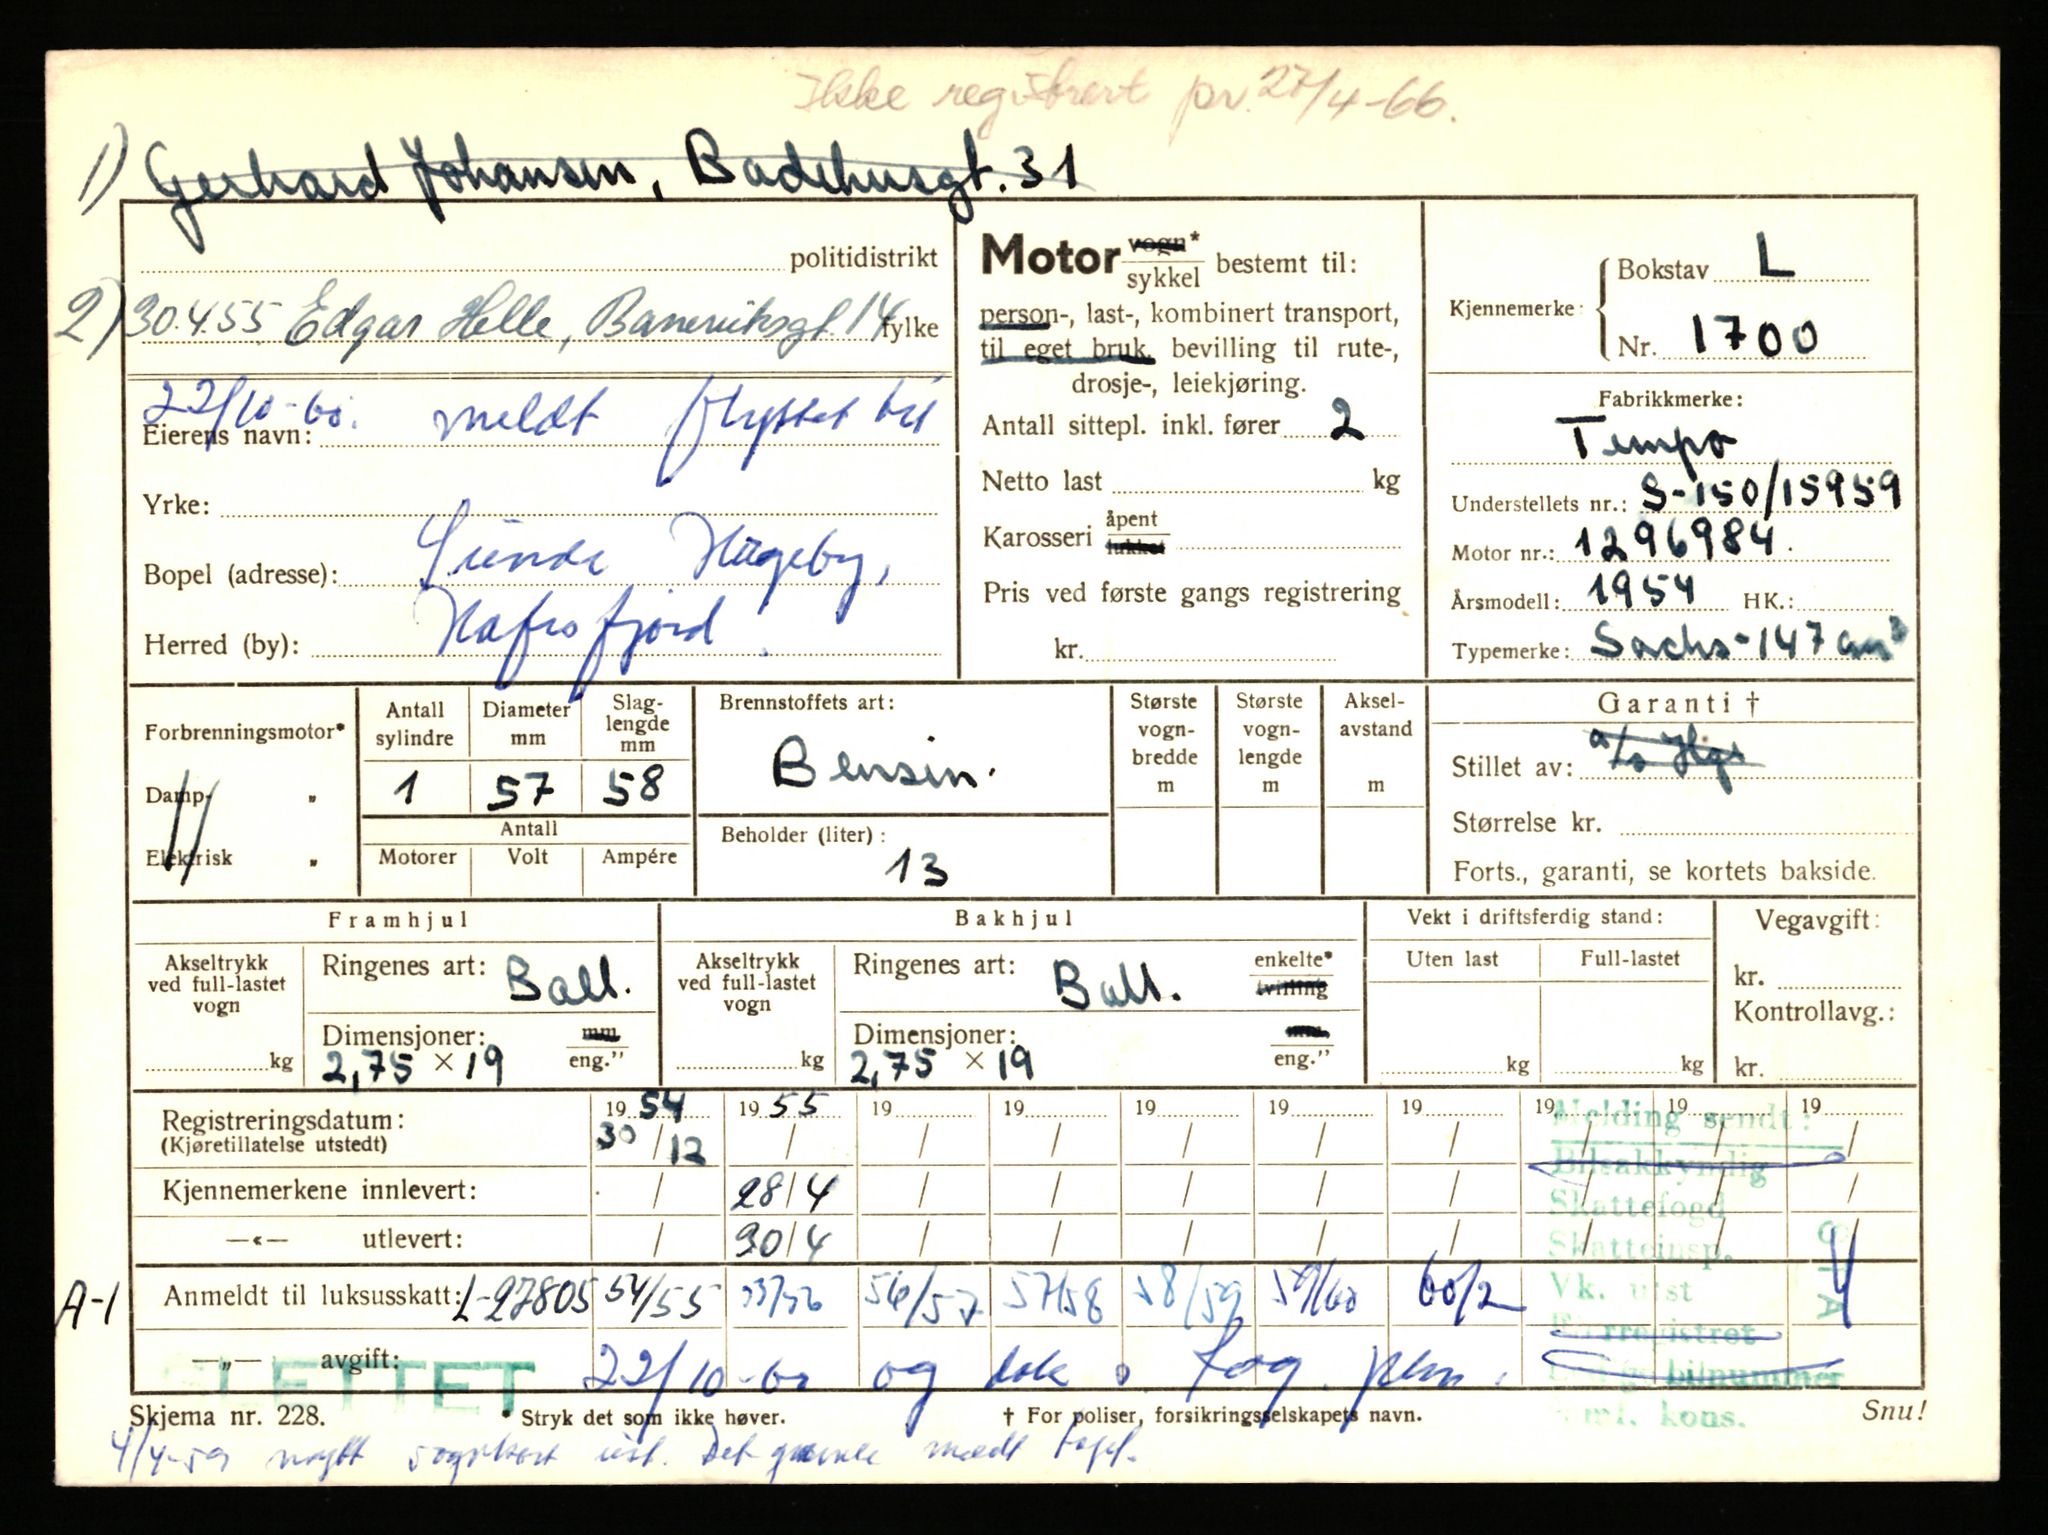 Ikke registrert pr. 27/4-66.
1) Gerhard Johansen, Badehusgt. 31
politidistrikt
2) 30.4.55 Edgar Helle, Baneviksgt. 14 fylke
22/10-60. meldt flyttet til
Eierens navn:
Yrke:
Bopel (adresse): Sunde Hageby,
Herred (by): Hafrsfjord.
Motor vogn* / sykkel bestemt til:
person-, last-, kombinert transport,
til eget bruk, bevilling til rute-,
drosje-, leiekjøring.
Antall sittepl. inkl. fører 2
Netto last kg
Karosseri åpent / lukket
Pris ved første gangs registrering
kr.
Kjennemerke: Bokstav L
Nr. 1700
Fabrikkmerke:
Tempo
Understellets nr.: S-150/15959
Motor nr.: 1296984.
Årsmodell: 1954 HK.:
Typemerke: Sachs-147 cm³
Forbrenningsmotor*
Damp- „
Elektrisk „
Antall sylindre
1
Diameter mm
57
Slaglengde mm
58
Antall
Motorer Volt Ampére
Brennstoffets art:
Bensin.
Beholder (liter):
13
Største vogn-bredde m
Største vogn-lengde m
Aksel-avstand m
Garanti †
Stillet av:
Størrelse kr.
Forts., garanti, se kortets bakside.
Framhjul
Akseltrykk ved full-lastet vogn
kg
Ringenes art: Ball.
Dimensjoner: mm / eng.”
2,75 × 19
Bakhjul
Akseltrykk ved full-lastet vogn
kg
Ringenes art: Ball. enkelte* / tvilling
Dimensjoner: eng.”
2,75 × 19
Vekt i driftsferdig stand:
Uten last Full-lastet
kg kg
Vegavgift:
kr.
Kontrollavg.:
kr.
Registreringsdatum: 19 54 19 55 19 19 19 19 19 19 19 19
(Kjøretillatelse utstedt) 30/12 / / / / / / / / /
Kjennemerkene innlevert: / 28/4 / / / / / / / /
—«— utlevert: / 30/4 / / / / / / / /
A-1 Anmeldt til luksusskatt: L-27805 54/55 55/56 56/57 57/58 58/59 59/60 60/2
—„— avgift: 22/10-60 og
SLETTET
Melding sendt:
Bilsakkyndig
Skattefogd
Skatteinsp.
Vk. utst
bilnummer
kons.
Skjema nr. 228. * Stryk det som ikke høver. † For poliser, forsikringsselskapets navn. Snu!
4/4-59 nytt vognkort utst. Det gamle